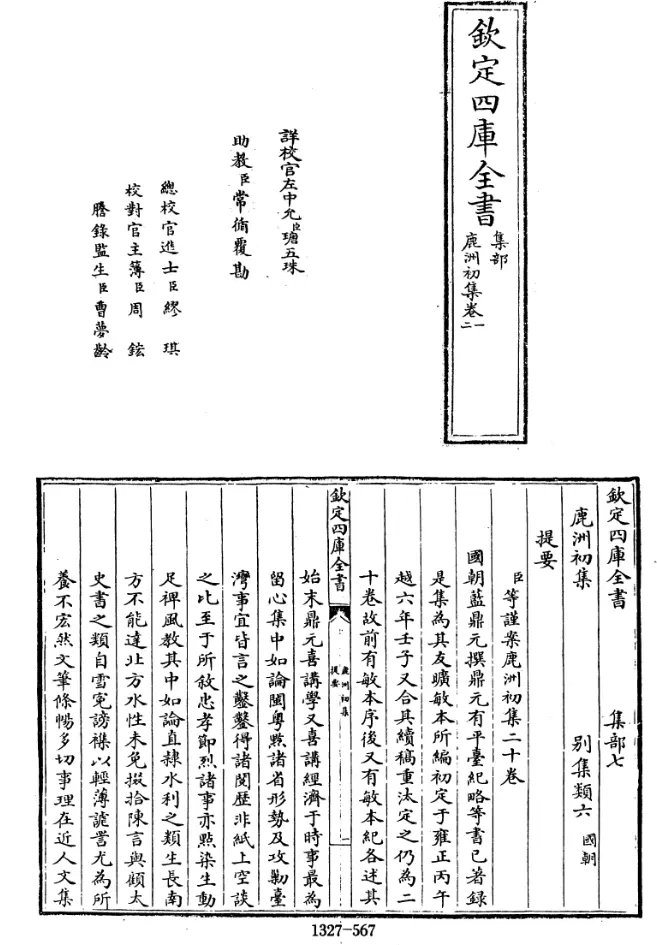 欽定四庫全書
集部
鹿洲初集卷一二
詳校官左中允臣瑭五珠
助教臣常循覆勘
總校官進士臣繆琪
校對官主簿臣周鋐
謄錄監生臣曹夢齡
欽定四庫全書 集部七
鹿洲初集 別集類六 國朝
提要
臣等謹案鹿洲初集二十卷
國朝藍鼎元撰鼎元有平臺紀略等書已著録
是集為其友曠敏本所編初定于雍正丙午
越六年壬子又合其續稿重汰定之仍為二
十卷故前有敏本序後又有敏本紀各述其
欽定四庫全書
鹿洲初集
提要
一
始末鼎元喜講學又喜講經濟于時事最為
留心集中如論閩粵黔諸省形勢及攻勦臺
灣事宜皆言之鑿鑿得諸閱歴非紙上空談
之比至于所敘忠孝節烈諸事亦㸃染生動
足裨風教其中如論直隸水利之類生長南
方不能達北方水性未免掇拾陳言與顧太
史書之類自雪寃謗襍以輕薄詭詈尤為所
養不宏然文筆條暢多切事理在近人文集
1327-567